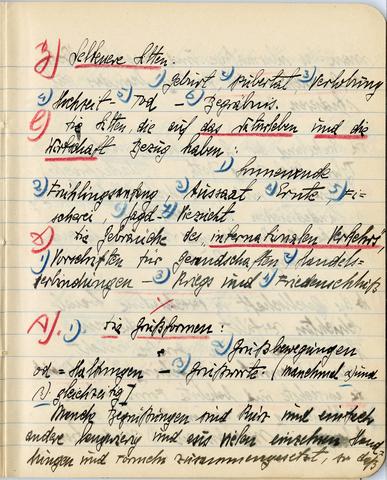 3) Seltenere Sitten:
1) Geburt 2) Pubertät 3) Verlobung
4) Hochzeit – 5) Tod – 6) Begräbnis.
die Sitten, die auf das Naturleben und die
Wirtschaft Bezug haben:
1) Sonnenwende
2) Frühlingsanfang, 3) Aussaat, 4) Ernte, 5) Fi-
scherei, 6) Jagd – 7) Viezucht
die Gebräuche des internationalen Verkehrs,
1) Vorschriften für Gesandschaften 2) Handels-
verbindungen – 3) Kriegs und 4) Friedenschluß
A). 1) die Grußformen:
2) Grußbewegungen
od = Haltungen – 3) Grußworte (manchmal 2) und
3) gleichzeitig)
Manche Begrüßungen sind kurz und einfach
andere langwierig und aus vielen einzelnen Hand-
lungen und Formeln zusammengesetzt, so daß